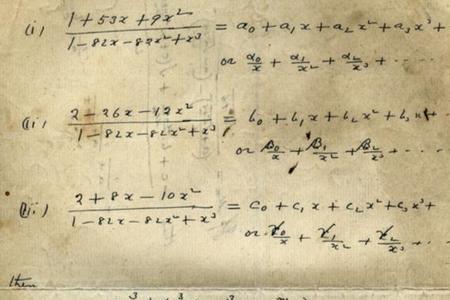 (i) (1+53x+9x²)/(1-82x-82x²+x³) = a₀+a₁x+a₂x²+a₃x³+
or α₀/x + α₁/x² + α₂/x³ + ....
(ii) (2-26x-12x²)/(1-82x-82x²+x³) = b₀+b₁x+b₂x²+b₃x³+.
or β₀/x + β₁/x² + β₂/x³ + ....
(iii) (2+8x-10x²)/(1-82x-82x²+x³) = c₀+c₁x+c₂x²+c₃x³+
or γ₀/x + γ₁/x² + γ₂/x³ + ..
then